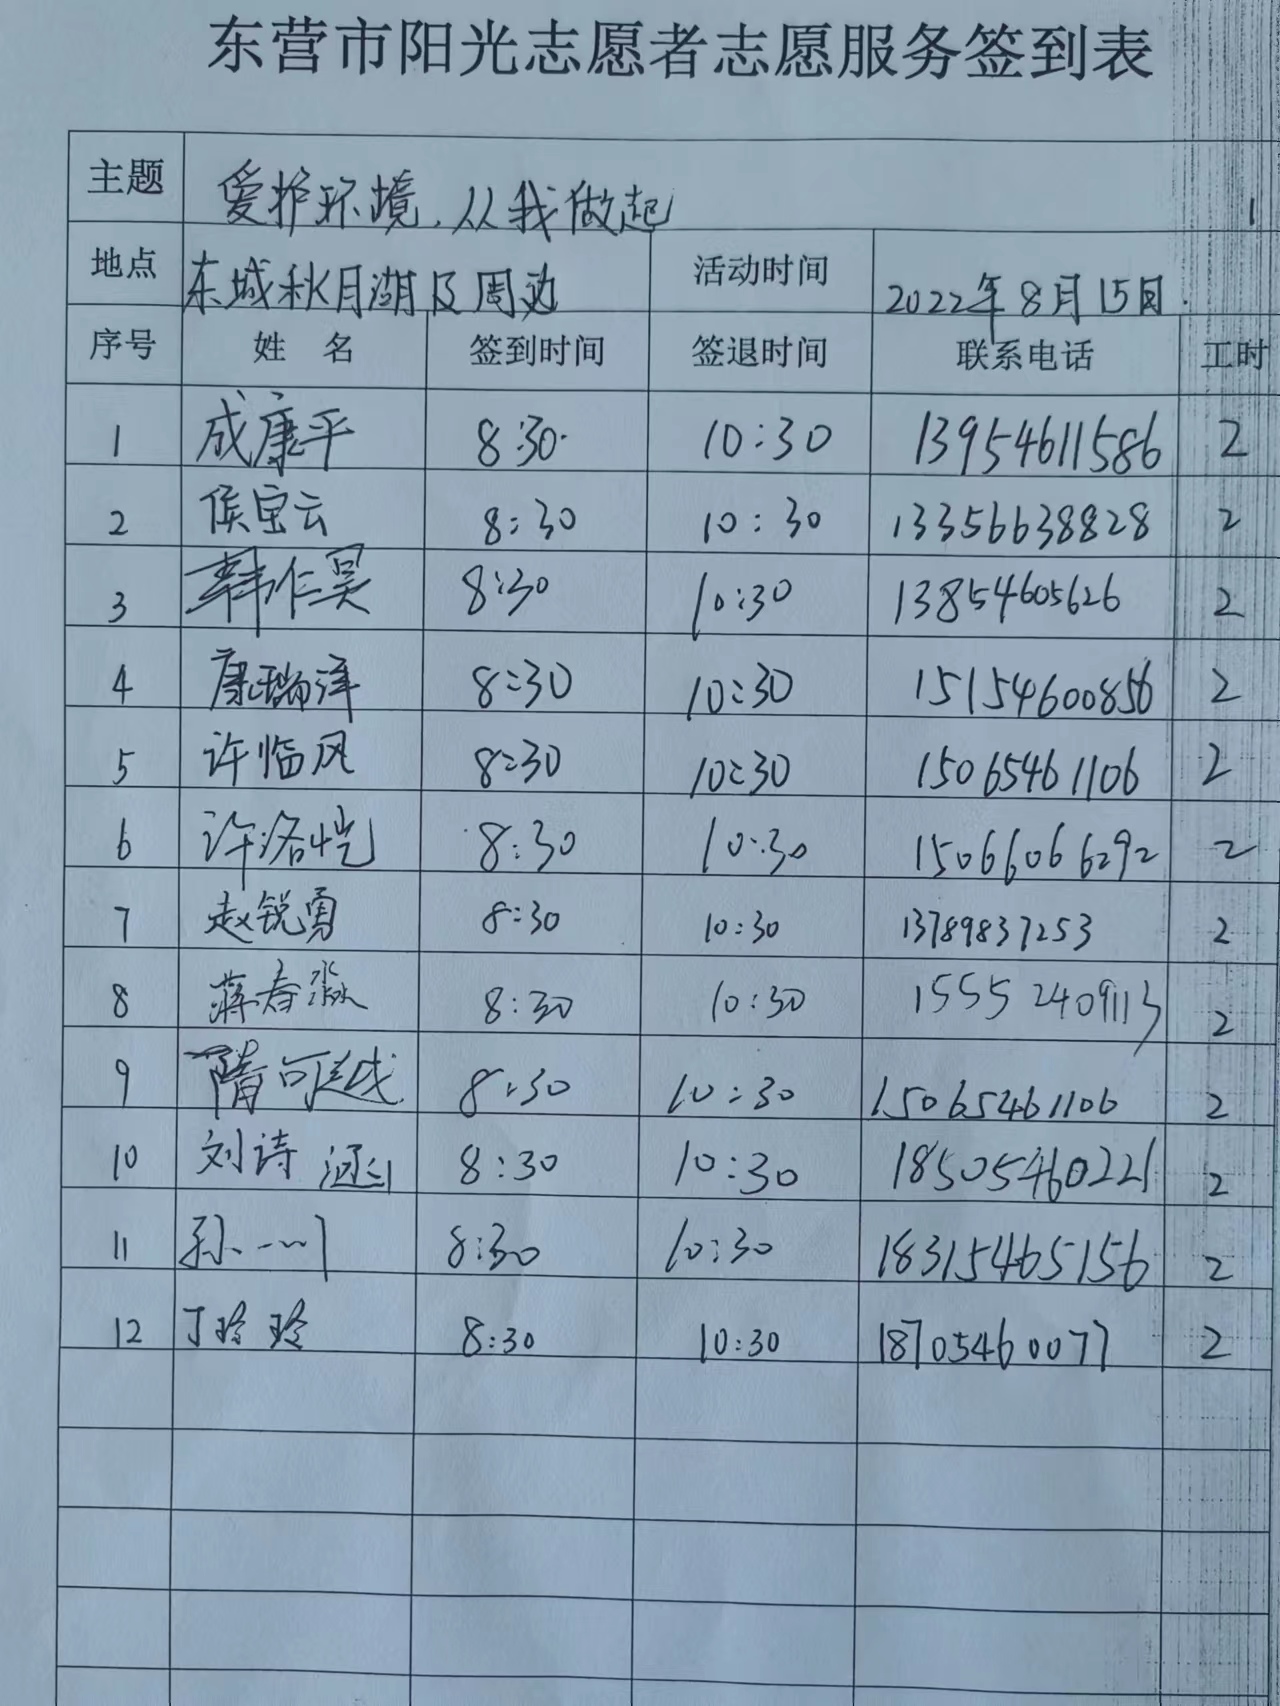 东营市阳光志愿者志愿服务签到表
主题 爱护环境.从我做起
地点 东城秋月湖及周边 活动时间 2022年8月15日.
序号 姓名 签到时间 签退时间 联系电话 工时
1 成康平 8:30 10:30 13954611586 2
2 侯宝云 8:30 10:30 13356638828 2
3 韩作昊 8:30 10:30 13854605626 2
4 康瑞洋 8:30 10:30 15154600856 2
5 许临风 8:30 10:30 15065461106 2
6 许洛恺 8:30 10:30 15066066292 2
7 赵锐勇 8:30 10:30 13789837253 2
8 蒋春淼 8:30 10:30 15552409113 2
9 隋 8:30 10:30 15065461106 2
10 刘诗涵 8:30 10:30 18505460221 2
11 孙一川 8:30 10:30 18315465156 2
12 丁玲玲 8:30 10:30 18705460077 2